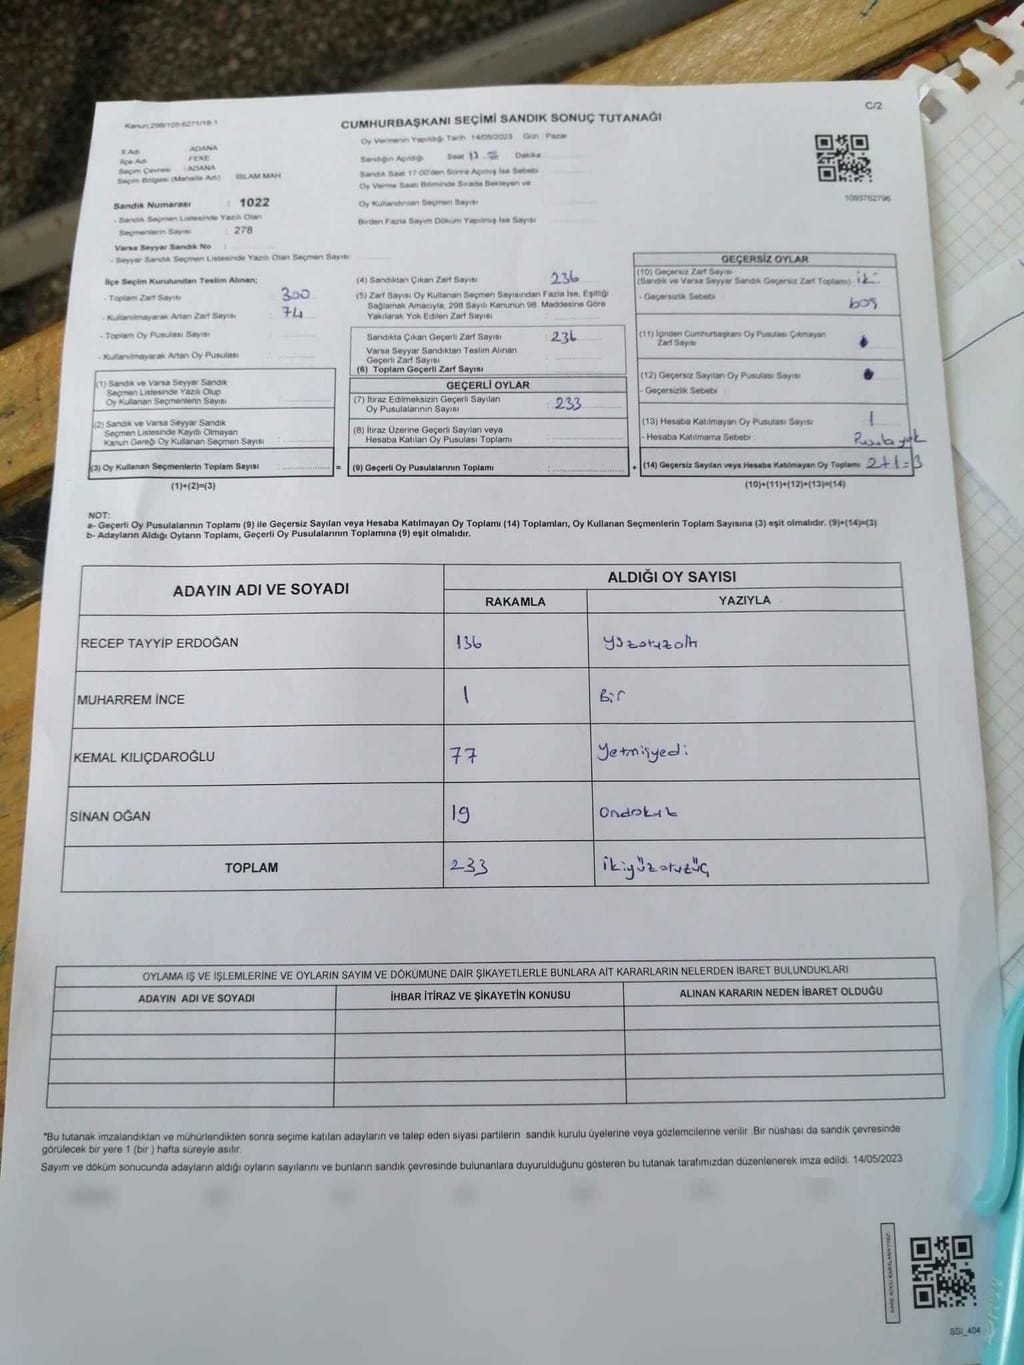 C/2
Kanun:298/105:6271/18-1
CUMHURBAŞKANI SEÇİMİ SANDIK SONUÇ TUTANAĞI
İl Adı ADANA
İlçe Adı FEKE
Seçim Çevresi : ADANA
Seçim Bölgesi (Mahalle Adı) İSLAM MAH
Oy Vermenin Yapıldığı Tarih 14/05/2023 Gün : Pazar
Sandığın Açıldığı Saat 17 Dakika
Sandık Saat 17:00'den Sonra Açılmış İse Sebebi
Oy Verme Saati Bitiminde Sırada Bekleyen ve
Oy Kullandırılan Seçmen Sayısı
Birden Fazla Sayım Döküm Yapılmış İse Sayısı
1093762796
Sandık Numarası : 1022
- Sandık Seçmen Listesinde Yazılı Olan
Seçmenlerin Sayısı : 278
Varsa Seyyar Sandık No :
- Seyyar Sandık Seçmen Listesinde Yazılı Olan Seçmen Sayısı
İlçe Seçim Kurulundan Teslim Alınan;
- Toplam Zarf Sayısı 300
- Kullanılmayarak Artan Zarf Sayısı : 74
- Toplam Oy Pusulası Sayısı
- Kullanılmayarak Artan Oy Pusulası
(1) Sandık ve Varsa Seyyar Sandık
Seçmen Listesinde Yazılı Olup
Oy Kullanan Seçmenlerin Sayısı
(2) Sandık ve Varsa Seyyar Sandık
Seçmen Listesinde Kayıtlı Olmayan
Kanun Gereği Oy Kullanan Seçmen Sayısı
(3) Oy Kullanan Seçmenlerin Toplam Sayısı :
(1)+(2)=(3)
=
(4) Sandıktan Çıkan Zarf Sayısı 236
(5) Zarf Sayısı Oy Kullanan Seçmen Sayısından Fazla İse, Eşitliği
Sağlamak Amacıyla, 298 Sayılı Kanunun 98. Maddesine Göre
Yakılarak Yok Edilen Zarf Sayısı
Sandıkta Çıkan Geçerli Zarf Sayısı : 236
Varsa Seyyar Sandıktan Teslim Alınan
Geçerli Zarf Sayısı
(6) Toplam Geçerli Zarf Sayısı
GEÇERLİ OYLAR
(7) İtiraz Edilmeksizin Geçerli Sayılan
Oy Pusulalarının Sayısı : 233
(8) İtiraz Üzerine Geçerli Sayılan veya
Hesaba Katılan Oy Pusulası Toplamı
(9) Geçerli Oy Pusulalarının Toplamı :
+
GEÇERSİZ OYLAR
(10) Geçersiz Zarf Sayısı
(Sandık ve Varsa Seyyar Sandık Geçersiz Zarf Toplamı) iki
- Geçersizlik Sebebi boş
(11) İçinden Cumhurbaşkanı Oy Pusulası Çıkmayan
Zarf Sayısı
(12) Geçersiz Sayılan Oy Pusulası Sayısı
- Geçersizlik Sebebi
(13) Hesaba Katılmayan Oy Pusulası Sayısı 1
- Hesaba Katılmama Sebebi Pusula yok
(14) Geçersiz Sayılan veya Hesaba Katılmayan Oy Toplamı 2+1=3
(10)+(11)+(12)+(13)=(14)
NOT:
a- Geçerli Oy Pusulalarının Toplamı (9) ile Geçersiz Sayılan veya Hesaba Katılmayan Oy Toplamı (14) Toplamları, Oy Kullanan Seçmenlerin Toplam Sayısına (3) eşit olmalıdır. (9)+(14)=(3)
b- Adayların Aldığı Oyların Toplamı, Geçerli Oy Pusulalarının Toplamına (9) eşit olmalıdır.
ADAYIN ADI VE SOYADI
ALDIĞI OY SAYISI
RAKAMLA YAZIYLA
RECEP TAYYİP ERDOĞAN 136 yüzotuzaltı
MUHARREM İNCE 1 Bir
KEMAL KILIÇDAROĞLU 77 yetmişyedi
SİNAN OĞAN 19 Ondokuz
TOPLAM 233 ikiyüzotuzüç
OYLAMA İŞ VE İŞLEMLERİNE VE OYLARIN SAYIM VE DÖKÜMÜNE DAİR ŞİKAYETLERLE BUNLARA AİT KARARLARIN NELERDEN İBARET BULUNDUKLARI
ADAYIN ADI VE SOYADI İHBAR İTİRAZ VE ŞİKAYETİN KONUSU ALINAN KARARIN NEDEN İBARET OLDUĞU
*Bu tutanak imzalandıktan ve mühürlendikten sonra seçime katılan adayların ve talep eden siyasi partilerin sandık kurulu üyelerine veya gözlemcilerine verilir .Bir nüshası da sandık çevresinde
görülecek bir yere 1 (bir ) hafta süreyle asılır.
Sayım ve döküm sonucunda adayların aldığı oyların sayılarını ve bunların sandık çevresinde bulunanlara duyurulduğunu gösteren bu tutanak tarafımızdan düzenlenerek imza edildi. 14/05/2023
KARE KODU KARALAMAYINIZ!
SSI_404